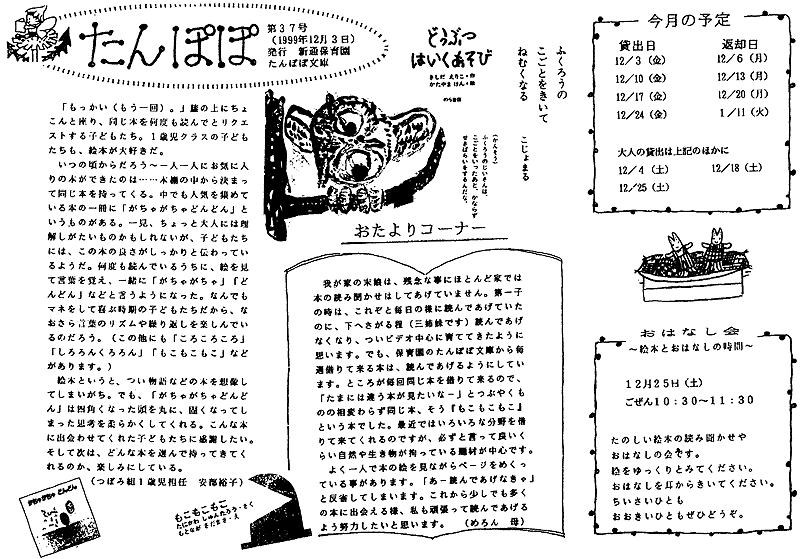 たんぽぽ
第37号
(1999年12月3日)
発行 新通保育園
たんぽぽ文庫
「もっかい(もう一回)。」膝の上にちょ
こんと座り、同じ本を何度も読んでとリクエ
ストする子どもたち。1歳児クラスの子ども
たちも、絵本が大好きだ。
いつの頃からだろう～一人一人にお気に入
りの本ができたのは……本棚の中から決まっ
て同じ本を持ってくる。中でも人気を集めて
いる本の一冊に「がちゃがちゃどんどん」と
いうものがある。一見、ちょっと大人には理
解しがたいものかもしれないが、子どもたち
には、この本の良さがしっかりと伝わってい
るようだ。何度も読んでいるうちに、絵を見
て言葉を覚え、一緒に「がちゃがちゃ」「ど
んどん」などと言うようになった。なんでも
マネをして喜ぶ時期の子どもたちだから、な
おさら言葉のリズムや繰り返しを楽しんでい
るのだろう。(この他にも「ころころころ」
「しろろんくろろん」「もこもこもこ」など
があります。)
絵本というと、つい物語などの本を想像し
てしまいがち。でも、「がちゃがちゃどんど
ん」は四角くなった頭を丸に、固くなってし
まった思考を柔らかくしてくれる。こんな本
に出会わせてくれた子どもたちに感謝したい。
そして次は、どんな本を選んで持ってきてく
れるのか、楽しみにしている。
(つぼみ組1歳児担任 安部裕子)
がちゃがちゃ どんどん
もこもこもこ
たにかわ しゅんたろう・さく
もとなが さだまさ・え
どうぶつ
はいくあそび
きしだ えりこ・作
かたやま けん・絵
のら書房
ふくろうの
こごとをきいて
ねむくなる
こじょまる
(かんそう)
ふくろうのじいさんは、
こごとをいったあと、かならず
せきばらいをするんだな。
おたよりコーナー
我が家の末娘は、残念な事にほとんど家では
本の読み聞かせはしてあげていません。第一子
の時は、これぞと毎日の様に読んであげていた
のに、下へさがる程(三姉妹です)読んであげ
なくなり、ついビデオ中心に育ててきたように
思います。でも、保育園のたんぽぽ文庫から毎
週借りて来る本は、読んであげるようにしてい
ます。ところが毎回同じ本を借りて来るので、
「たまには違う本が見たいなー」とつぶやくも
のの相変わらず同じ本、そう『もこもこもこ』
という本でした。最近ではいろいろな分野を借
りて来てくれるのですが、必ずと言って良いく
らい自然や生き物が拘っている題材が中心です。
よく一人で本の絵を見ながらページをめくっ
ている事があります。「あー読んであげなきゃ」
と反省してしまいます。これから少しでも多く
の本に出会える様、私も頑張って読んであげる
よう努力したいと思います。 (めろん 母)
今月の予定
貸出日 返却日
12/3(金) 12/6(月)
12/10(金) 12/13(月)
12/17(金) 12/20(月)
12/24(金) 1/11(火)
大人の貸出は上記のほかに
12/4(土) 12/18(土)
12/25(土)
おはなし会
～絵本とおはなしの時間～
12月25日(土)
ごぜん10:30～11:30
たのしい絵本の読み聞かせや
おはなしの会です。
絵をゆっくりとみてください。
おはなしを耳からきいてください。
ちいさいひとも
おおきいひともぜひどうぞ。